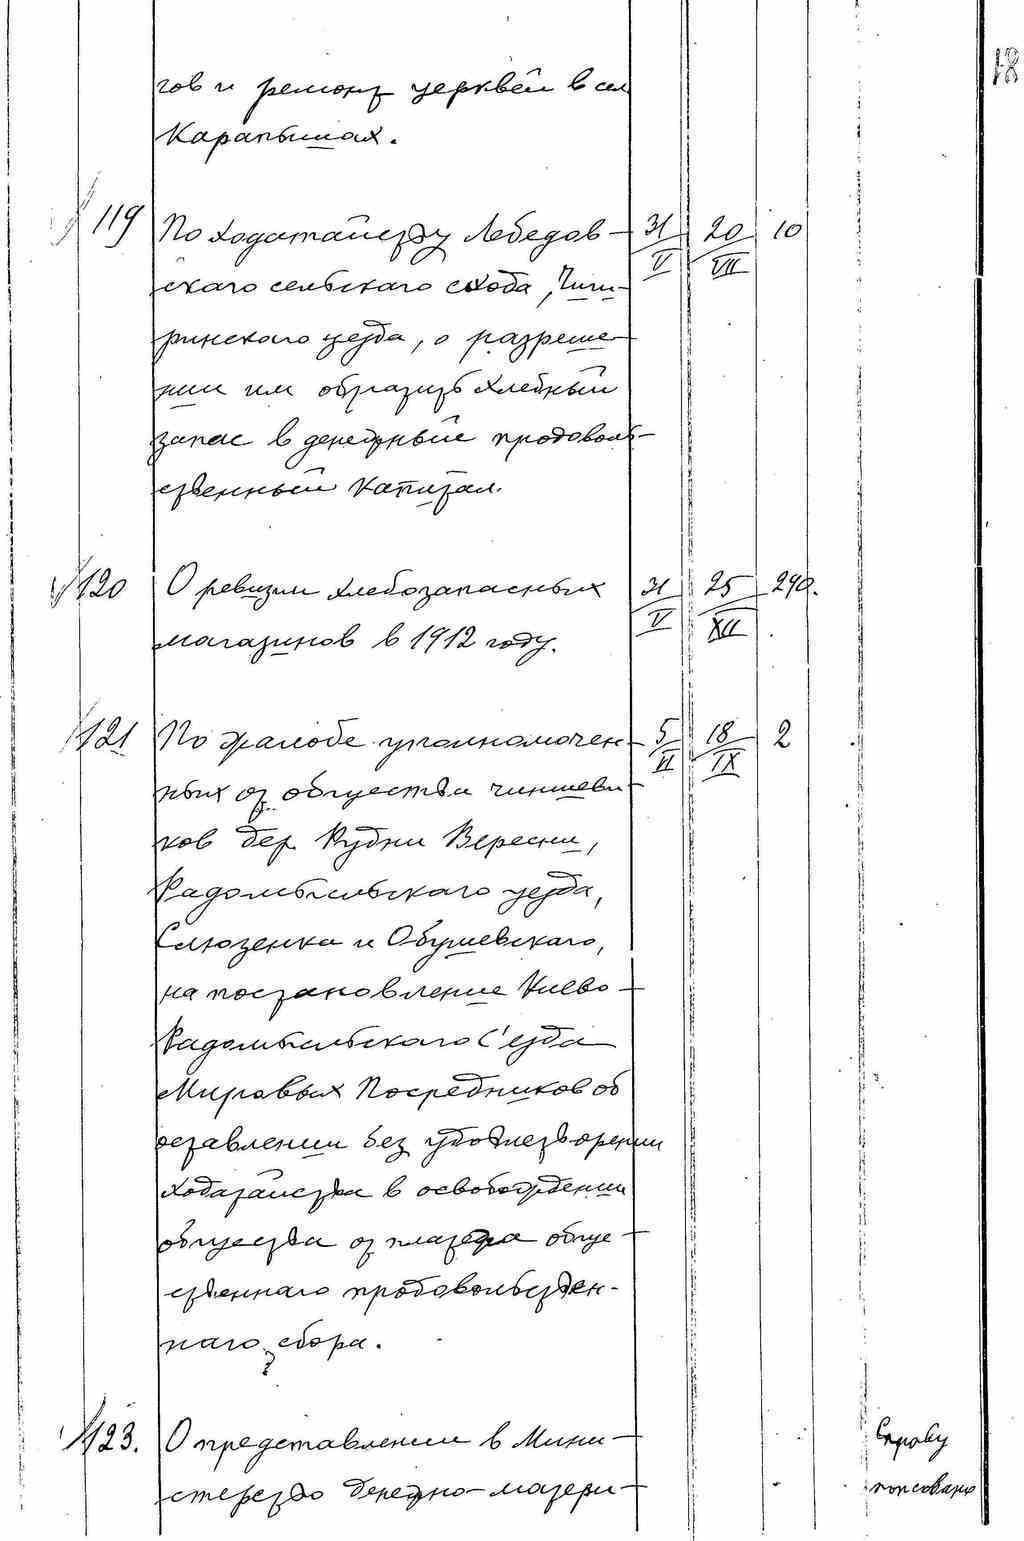 18
гов и ремонт церквей в сел
Карапышах.
119 По ходатайству Лебедов- 31/V 20/VII 10
скаго сельскаго схода, Чиги-
ринскаго уезда, о разреше-
нии им обратить хлебный
запас в денежный продоволь-
ственный капитал.
120 О ревизии хлебозапасных 31/V 25/XII 290.
магазинов в 1912 году.
121 По жалобе уполномочен- 5/VI 18/IX 2
ных от общества чиншеви-
ков дер. Рудни Вересни,
Радомысльскаго уезда,
Слюзенка и Обушевскаго,
на постановление Киево-
Радомысльскаго С'езда
Мировых Посредников об
оставлении без удовлетворении
ходатайства в освобождении
общества от платежа обще-
ственнаго продовольствен-
наго сбора.
123. О представлении в Мини- Справу
стерство денежно-матери- полсовано